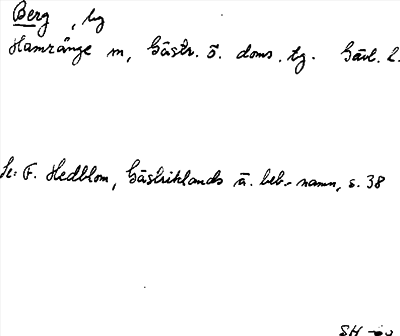 Berg, by
Hamrånge sn, Gästr. ö. doms. tg. Gävl. l.
Se: F. Hedblom, Gästriklands ä. beb.-namn, s. 38
SH